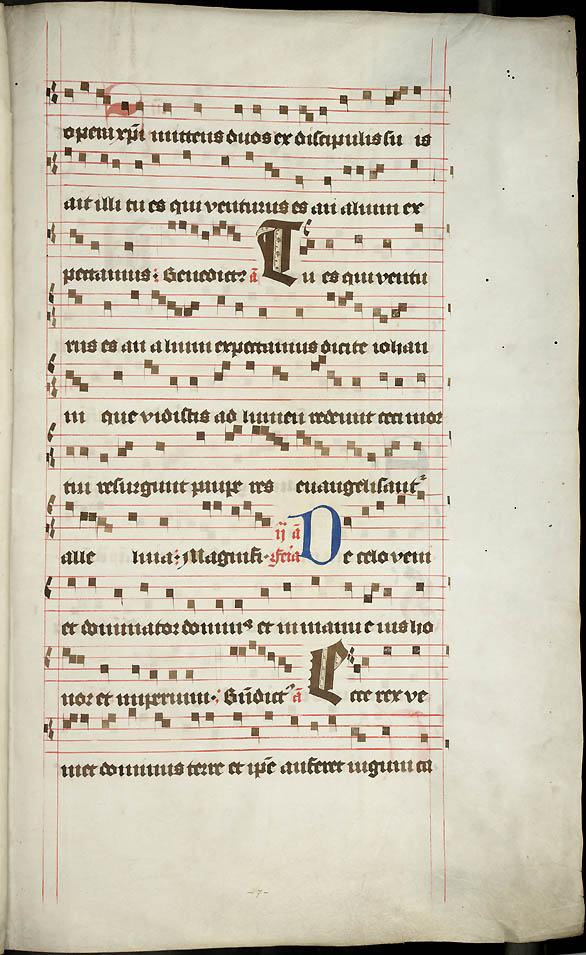 opera xpi mittens duos ex discipulis su is
ait illi tu es qui venturus es an alium ex
pectamus: Benedict9 a Tu es qui ventu
rus es an alium expectamus dicite iohan
ni que vidistis ad lumen redeunt ceci mor
tui resurgunt paupe res euangelisant2
alle luia: Magnifi. ij a feria De celo veni
et dominator domin9 et in manu eius ho
nor et imperium: Bndict9 a Ecce rex ve
niet dominus terre et ipse auferet iugum ca
-7-